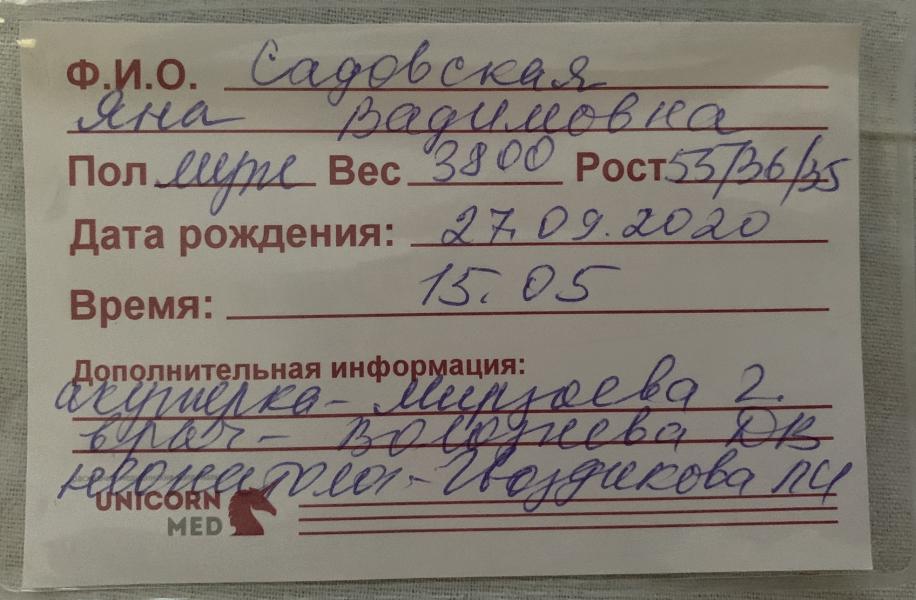 Ф.И.О. Садовская
Яна Вадимовна
Пол муж Вес 3800 Рост 55/36/35
Дата рождения: 27.09.2020
Время: 15.05
Дополнительная информация:
акушерка - Мирзоева Г.
врач - ДВ
неонатолог - Гвоздикова ЛИ
UNICORN
MED